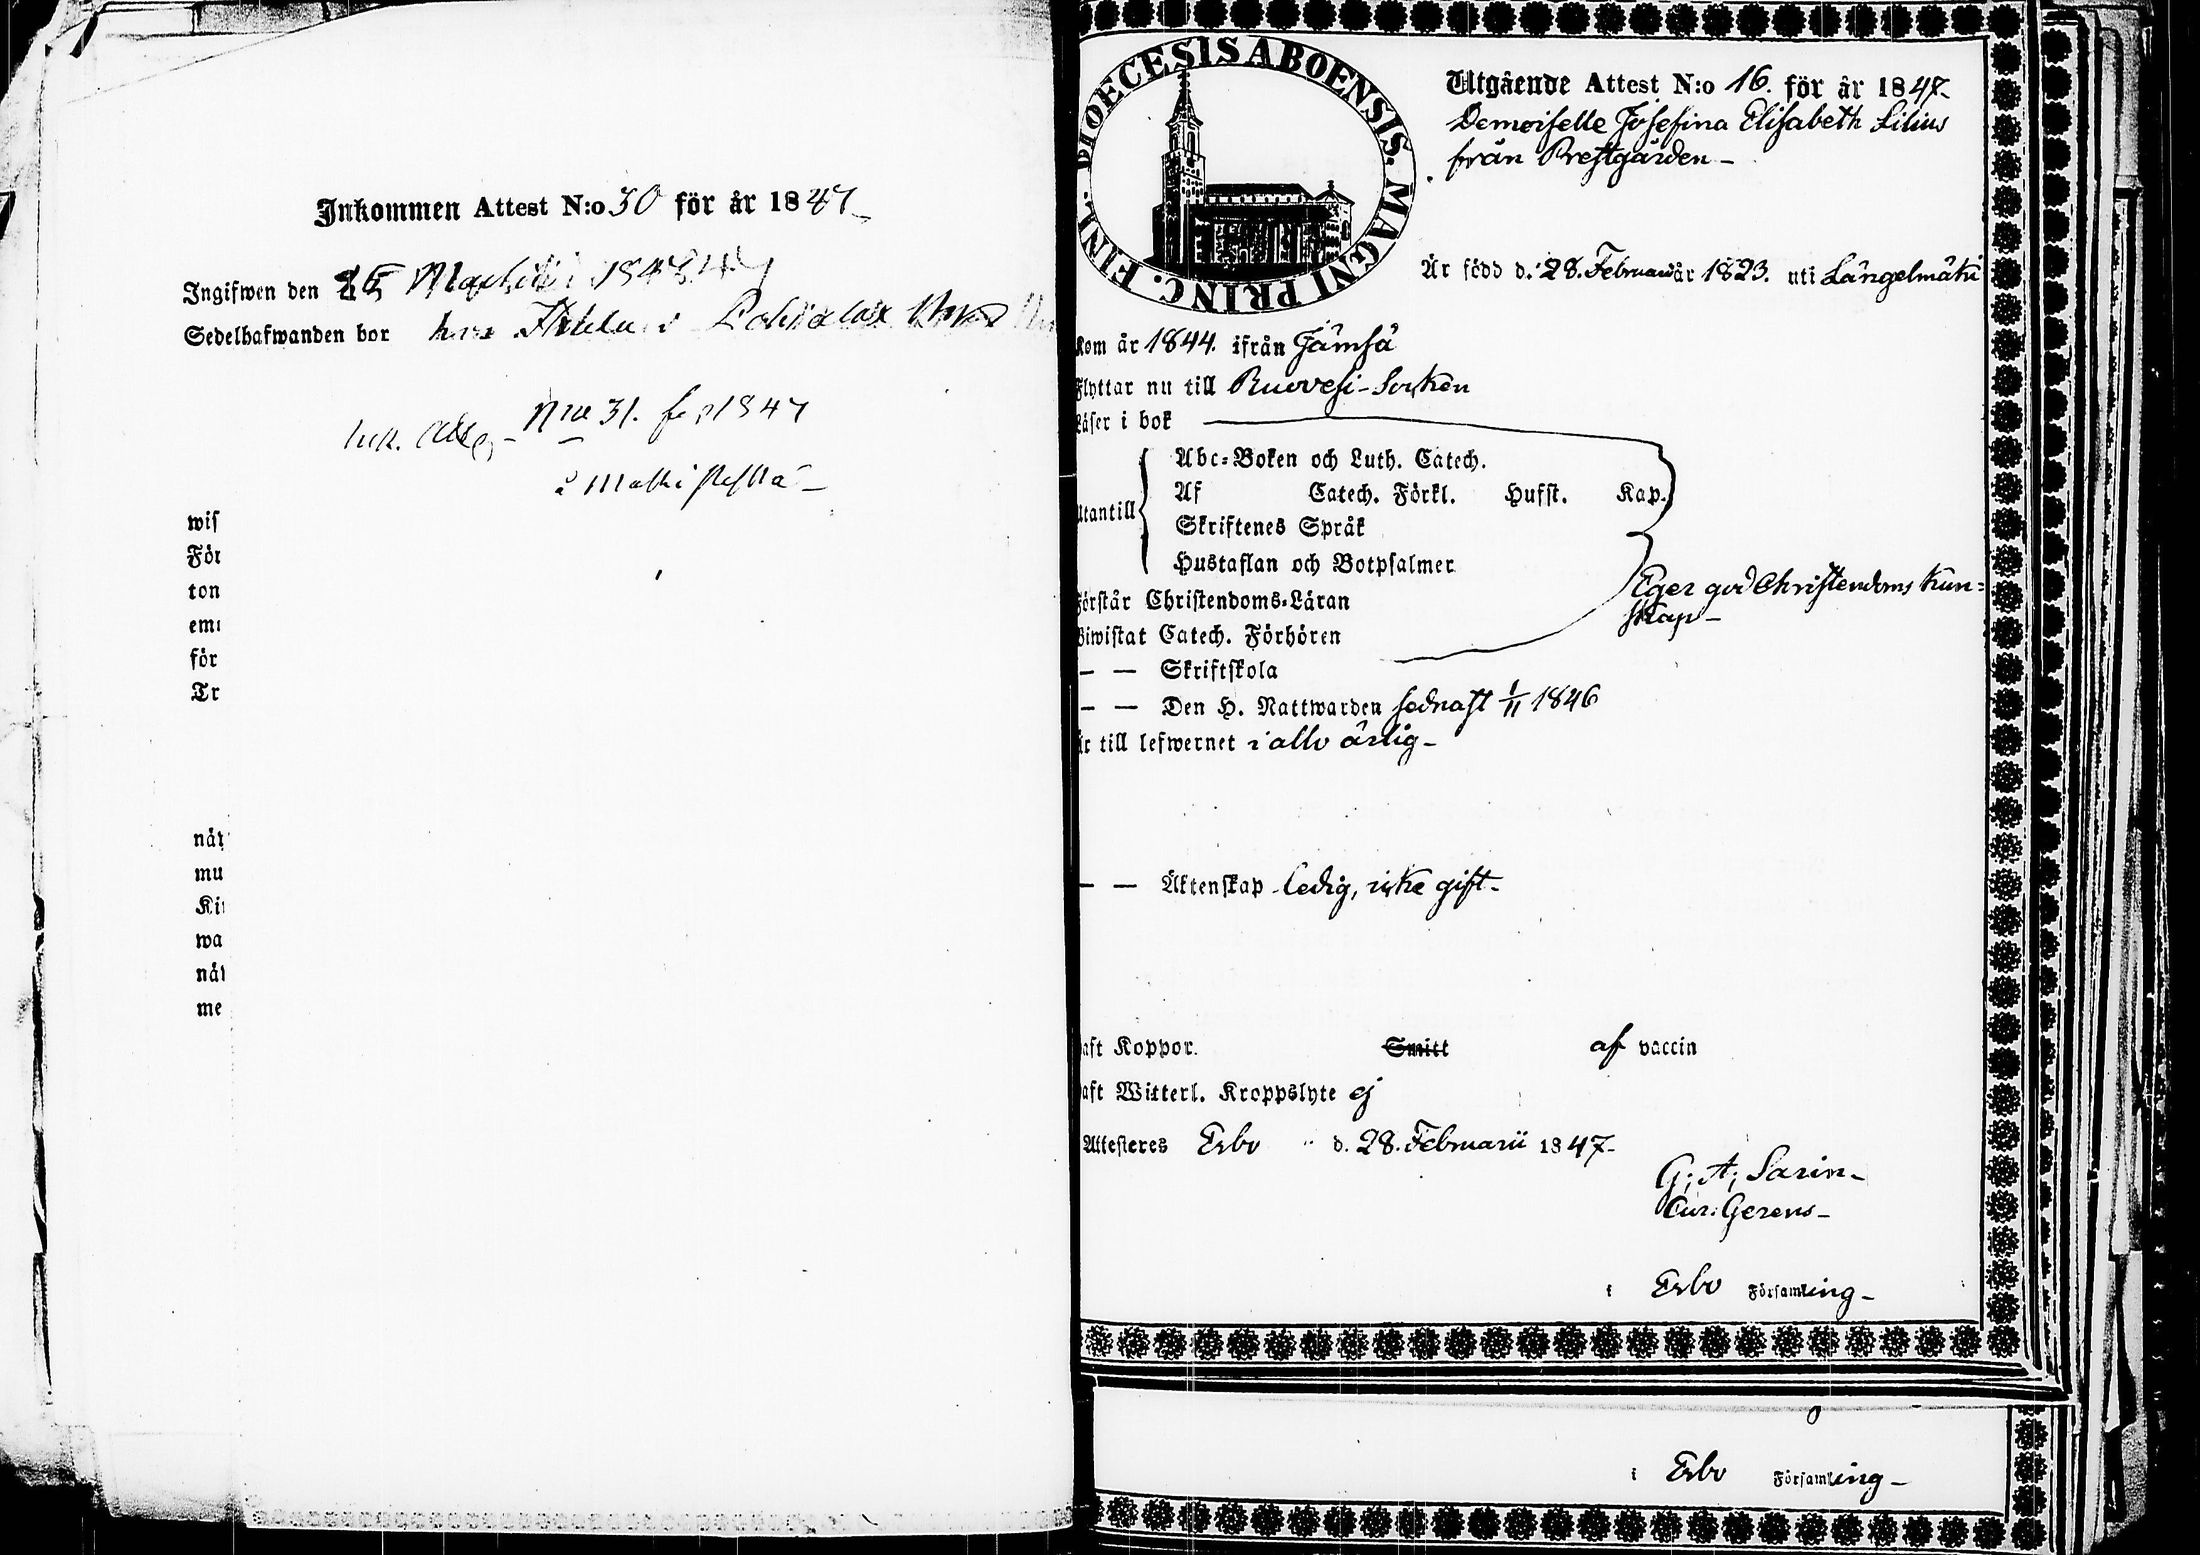 Inkommen Attest N:o 30 för år 1847
Ingifwen den 1847
Sedelhafwanden bor hos
Nro 31. för 1847
wis
För
ton
em
för
Tr
nåt
mu
Ki
wa
nåt
me
DIOECESIS ABOENSIS. MAGNI PRINC. FINL.
Utgående Attest N:o 16. för år 1847.
Demoiselle Josefina Elisabeth Lilius
från Prestgården -
Är född d. 28. Februarii år 1823. uti Längelmäki
Kom år 1844. ifrån Jämsä
Flyttar nu till Ruovesi-Socken
Läser i bok
Abc-Boken och Luth. Catech.
Af Catech. Förkl. Husst. Kap.
Utantill
Skriftenes Språk
Hustaflan och Botpsalmer
Eger god Christendoms kun=
Förstår Christendoms-Läran
skap -
Biwistat Catech. Förhören
— — Skriftskola
— — Den H. Nattwarden sednast 1/11 1846
Är till lefwernet i allo ärlig -
— — Äktenskap ledig, icke gift -
Haft Koppor. Smitt af vaccin
Haft Witterl. Kroppslyte ej
Attesteres Erbo d. 28. Februarii 1847-
G: A; Sarin -
Cur: Gerens -
i Erbo Församling -
i Erbo Församling -